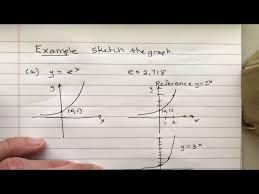 Example sketch the graph
(a) y = eˣ e = 2.718
Reference y=2ˣ
y y
(0,1) (0,1)
1 2
x x
y = 3ˣ